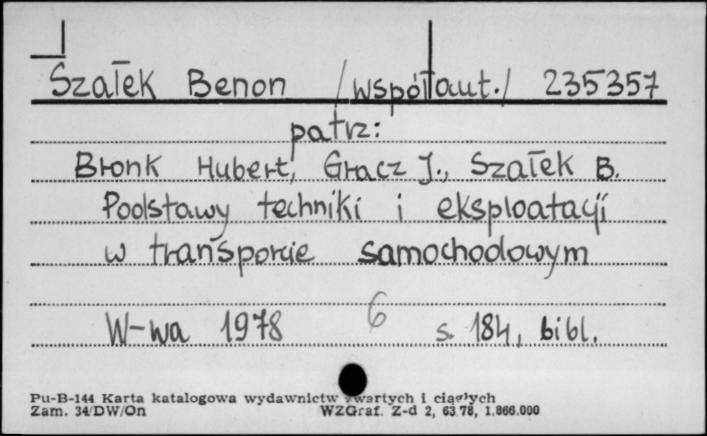 Szałek Benon /współaut./ 235357
patrz:
Bronk Hubert, Gracz J., Szałek B.
Podstawy techniki i eksploatacji
w transporcie samochodowym
W-wa 1978 6 s. 184, bibl.
Pu-B-144 Karta katalogowa wydawnictw zwartych i ciągłych
Zam. 34/DW/On WZGraf. Z-d 2, 63.78, 1.866.000